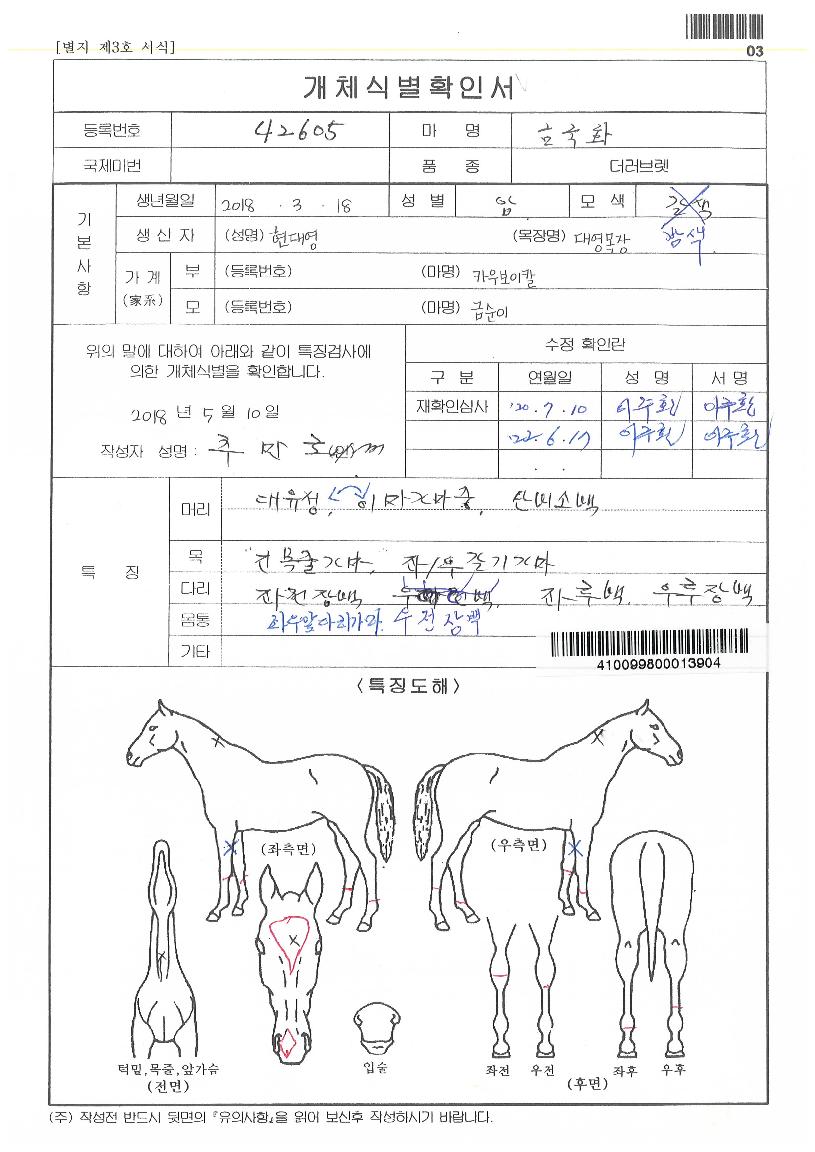 [별지 제3호 서식]
03
개체식별확인서
등록번호 42605 마 명 금국화
국제마번 품 종 더러브렛
기본사항
생년월일 2018 . 3 . 18 성 별 암 모 색 갈색
생 산 자 (성명) 현대영 (목장명) 대영목장
가 계 (家系) 부 (등록번호) (마명) 카우보이칼
모 (등록번호) (마명) 금순이
위의 말에 대하여 아래와 같이 특징검사에
의한 개체식별을 확인합니다.
2018 년 5 월 10 일
작성자 성명 :
수정 확인란
구 분 연월일 성 명 서 명
재확인심사 '20. 7. 10 이주흰 이주흰
'22. 6. 17 이주흰 이주흰
. .
특 징
머리 대유성, 이마가마중, 단비소백
목 건목줄가마, 좌/우갈기가마
다리 좌전장백 좌후백, 우후장백
몸통 좌우앞다리가마. 우전장백
기타
410099800013904
<특징도해>
(좌측면)
(우측면)
턱밑,목줄,앞가슴
(전면)
입술
좌전 우전
좌후 우후
(후면)
(주) 작성전 반드시 뒷면의 『유의사항』을 읽어 보신후 작성하시기 바랍니다.